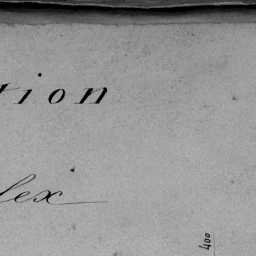 tion
lex
400